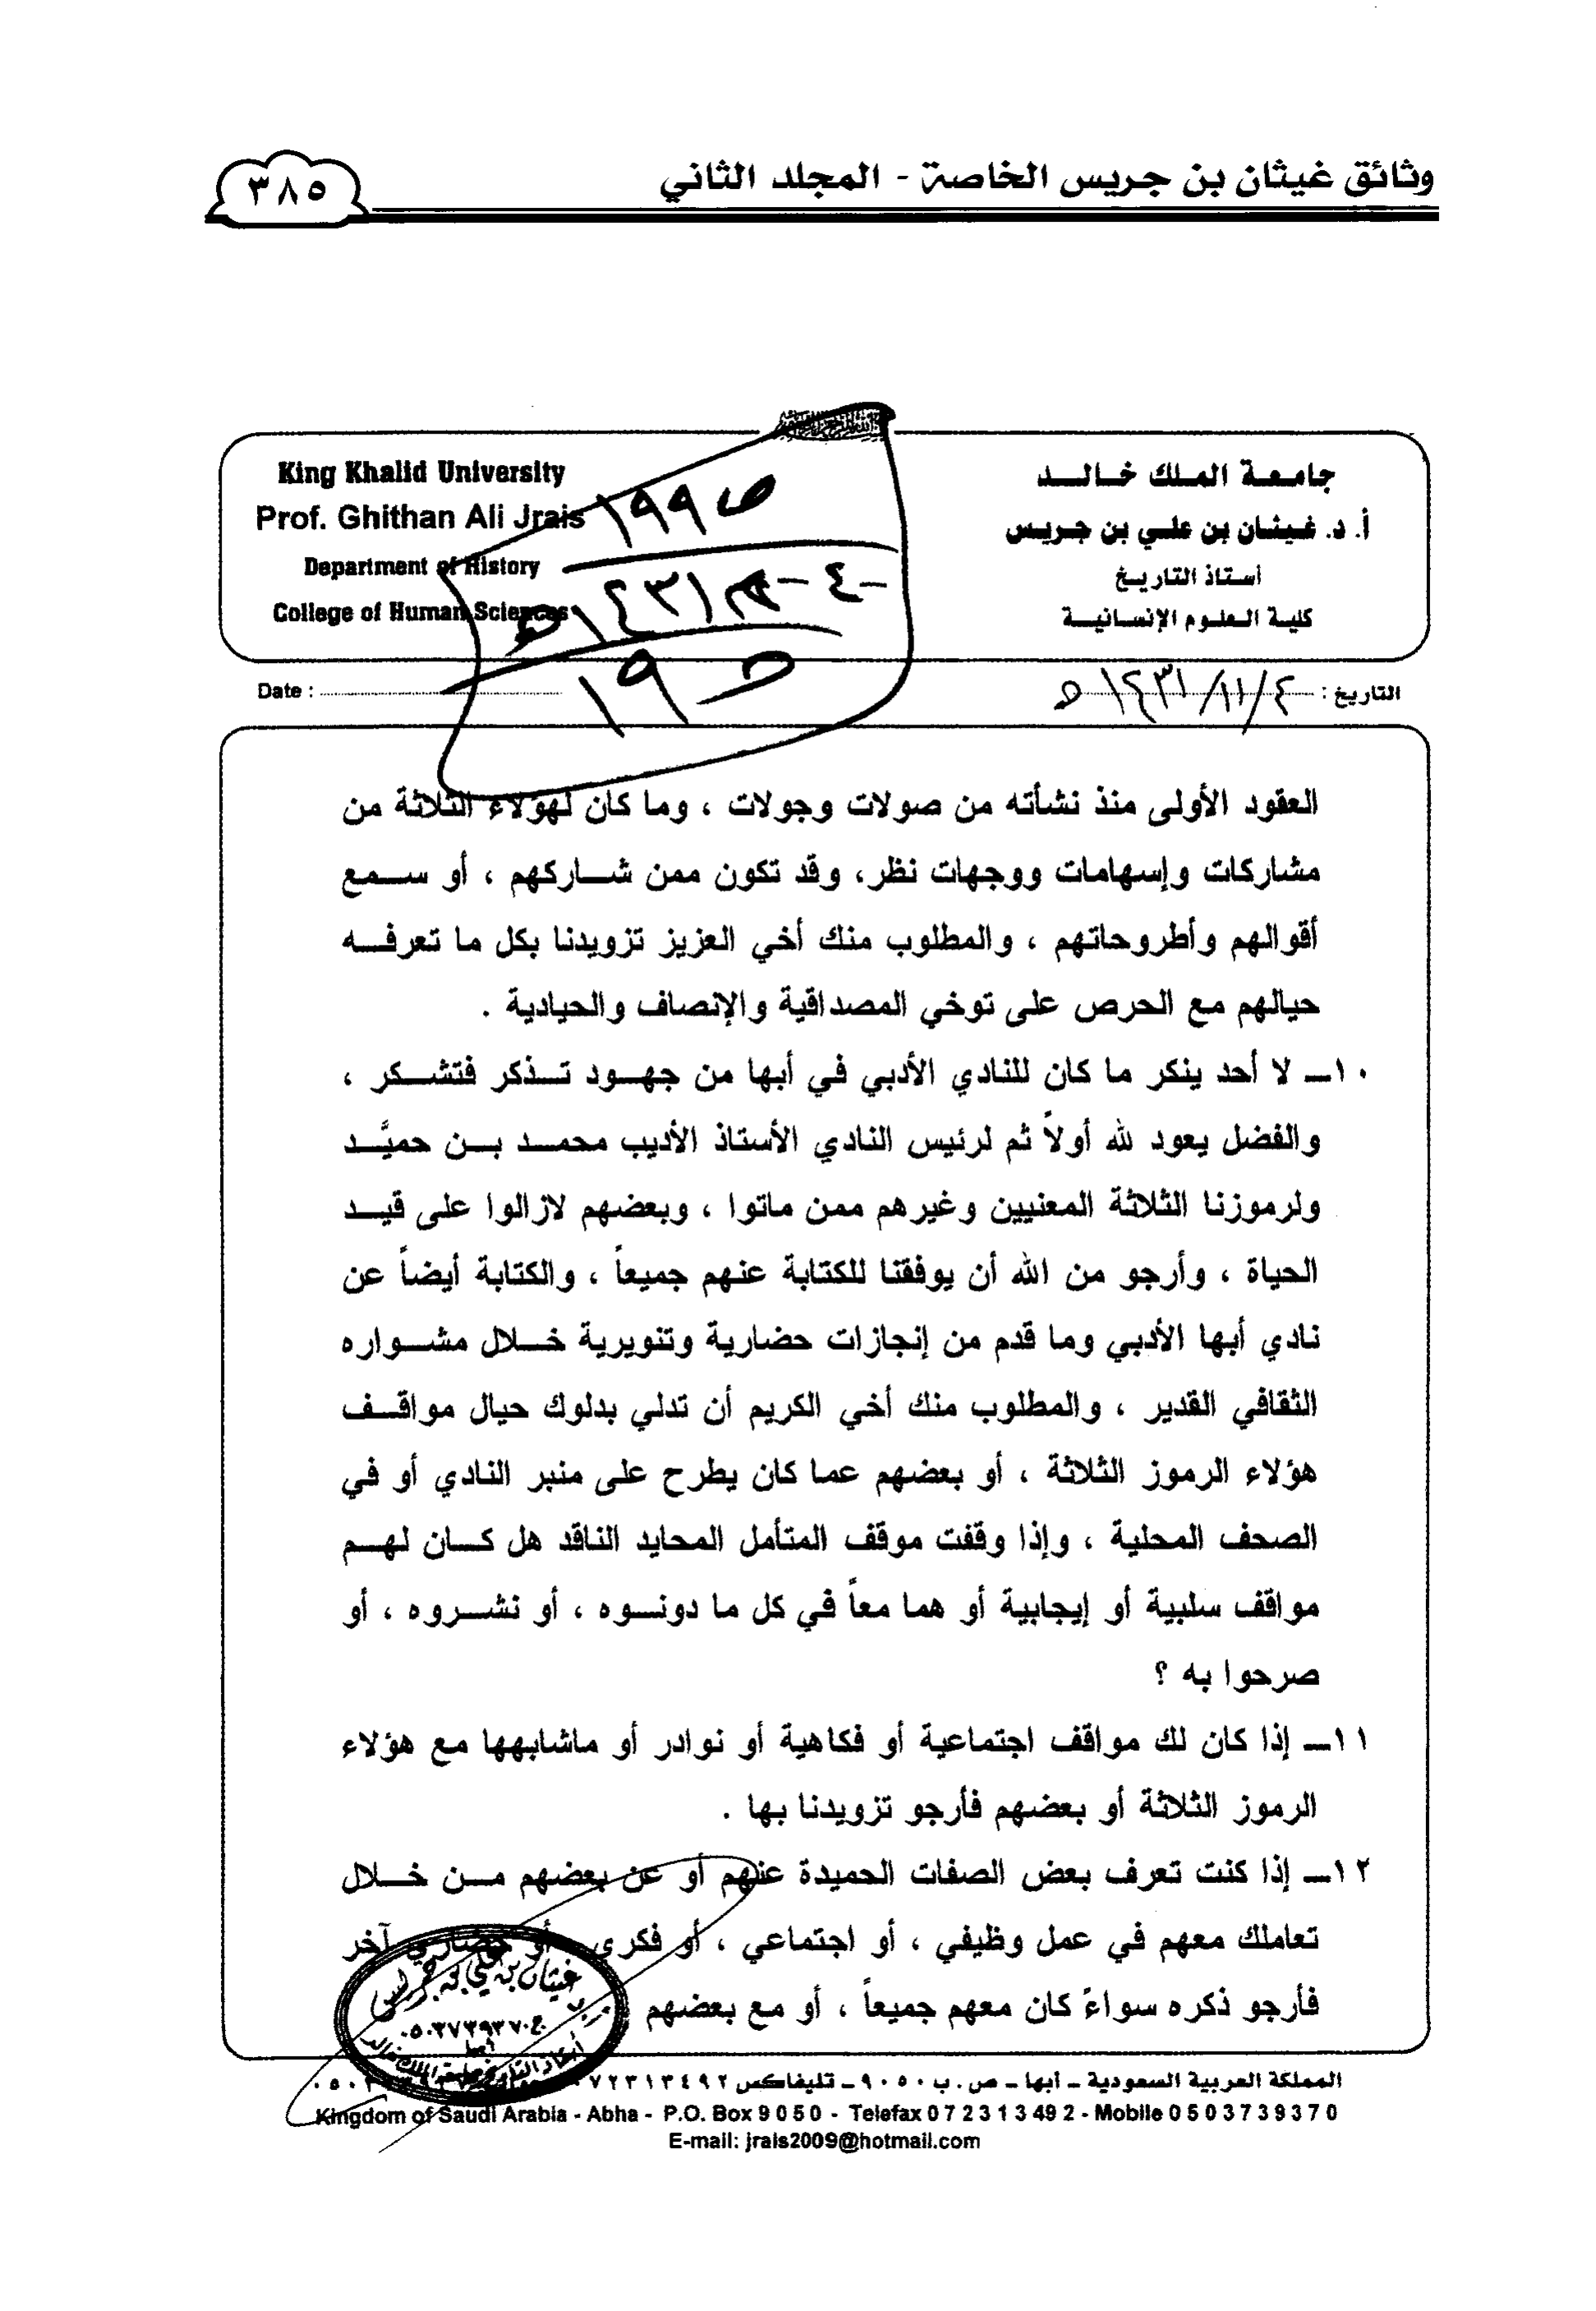 وثائق غيثان بن جريس الخاصة - المجلد الثاني
٣٨٥
جامعة الملك خالد
أ. د. غيثان بن علي بن جريس
أستاذ التاريخ
كلية العلوم الإنسانية
King Khalid University
Prof. Ghithan Ali Jrais
Department of History
College of Human Sciences
ص ١٩٩
١٩
التاريخ : ٤/١١/١٤٣١هـ
Date :
العقود الأولى منذ نشأته من صولات وجولات ، وما كان لهؤلاء الثلاثة من
مشاركات وإسهامات ووجهات نظر، وقد تكون ممن شاركهم ، أو سمع
أقوالهم وأطروحاتهم ، والمطلوب منك أخي العزيز تزويدنا بكل ما تعرفه
حيالهم مع الحرص على توخي المصداقية والإنصاف والحيادية .
١٠ــ لا أحد ينكر ما كان للنادي الأدبي في أبها من جهود تذكر فتشكر ،
والفضل يعود لله أولاً ثم لرئيس النادي الأستاذ الأديب محمد بن حميَّد
ولرموزنا الثلاثة المعنيين وغيرهم ممن ماتوا ، وبعضهم لازالوا على قيد
الحياة ، وأرجو من الله أن يوفقنا للكتابة عنهم جميعاً ، والكتابة أيضاً عن
نادي أبها الأدبي وما قدم من إنجازات حضارية وتنويرية خلال مشواره
الثقافي القدير ، والمطلوب منك أخي الكريم أن تدلي بدلوك حيال مواقف
هؤلاء الرموز الثلاثة ، أو بعضهم عما كان يطرح على منبر النادي أو في
الصحف المحلية ، وإذا وقفت موقف المتأمل المحايد الناقد هل كان لهم
مواقف سلبية أو إيجابية أو هما معاً في كل ما دونوه ، أو نشروه ، أو
صرحوا به ؟
١١ــ إذا كان لك مواقف اجتماعية أو فكاهية أو نوادر أو ماشابهها مع هؤلاء
الرموز الثلاثة أو بعضهم فأرجو تزويدنا بها .
١٢ــ إذا كنت تعرف بعض الصفات الحميدة عنهم أو عن بعضهم من خلال
تعاملك معهم في عمل وظيفي ، أو اجتماعي ، أو فكري ، أو حضاري آخر
فأرجو ذكره سواءً كان معهم جميعاً ، أو مع بعضهم
غيثان بن علي بن جريس
٠٥٠٣٧٣٩٣٧٠
أبها
المملكة العربية السعودية ــ أبها ــ ص . ب ٩٠٥٠ ــ تليفاكس ٠٧٢٣١٣٤٩٢
Kingdom of Saudi Arabia - Abha - P.O. Box 9 0 5 0 - Telefax 0 7 2 3 1 3 49 2 - Mobile 0 5 0 3 7 3 9 3 7 0
E-mail: jrais2009@hotmail.com